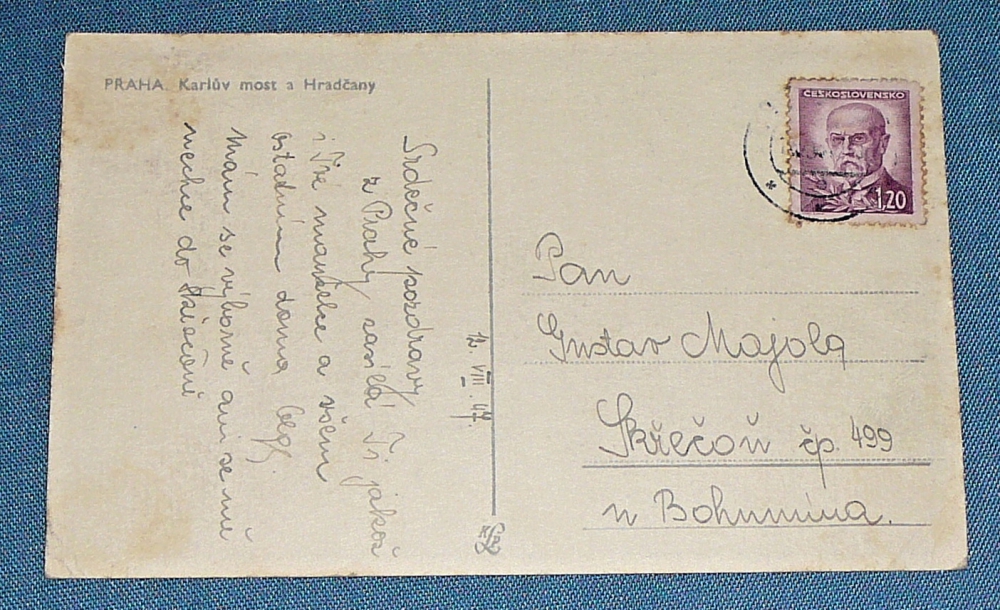 PRAHA. Karlův most a Hradčany
Srdečné pozdravy
z Prahy zasílá Ti jakož
i Tvé manželce a všem
ostatním doma
Mám se výborně ani se mě
nechce do
12. VIII. 47.
ČESKOSLOVENSKO
1,20
Pan
Gustav Majola
Skřečoň čp. 499
u Bohumína.